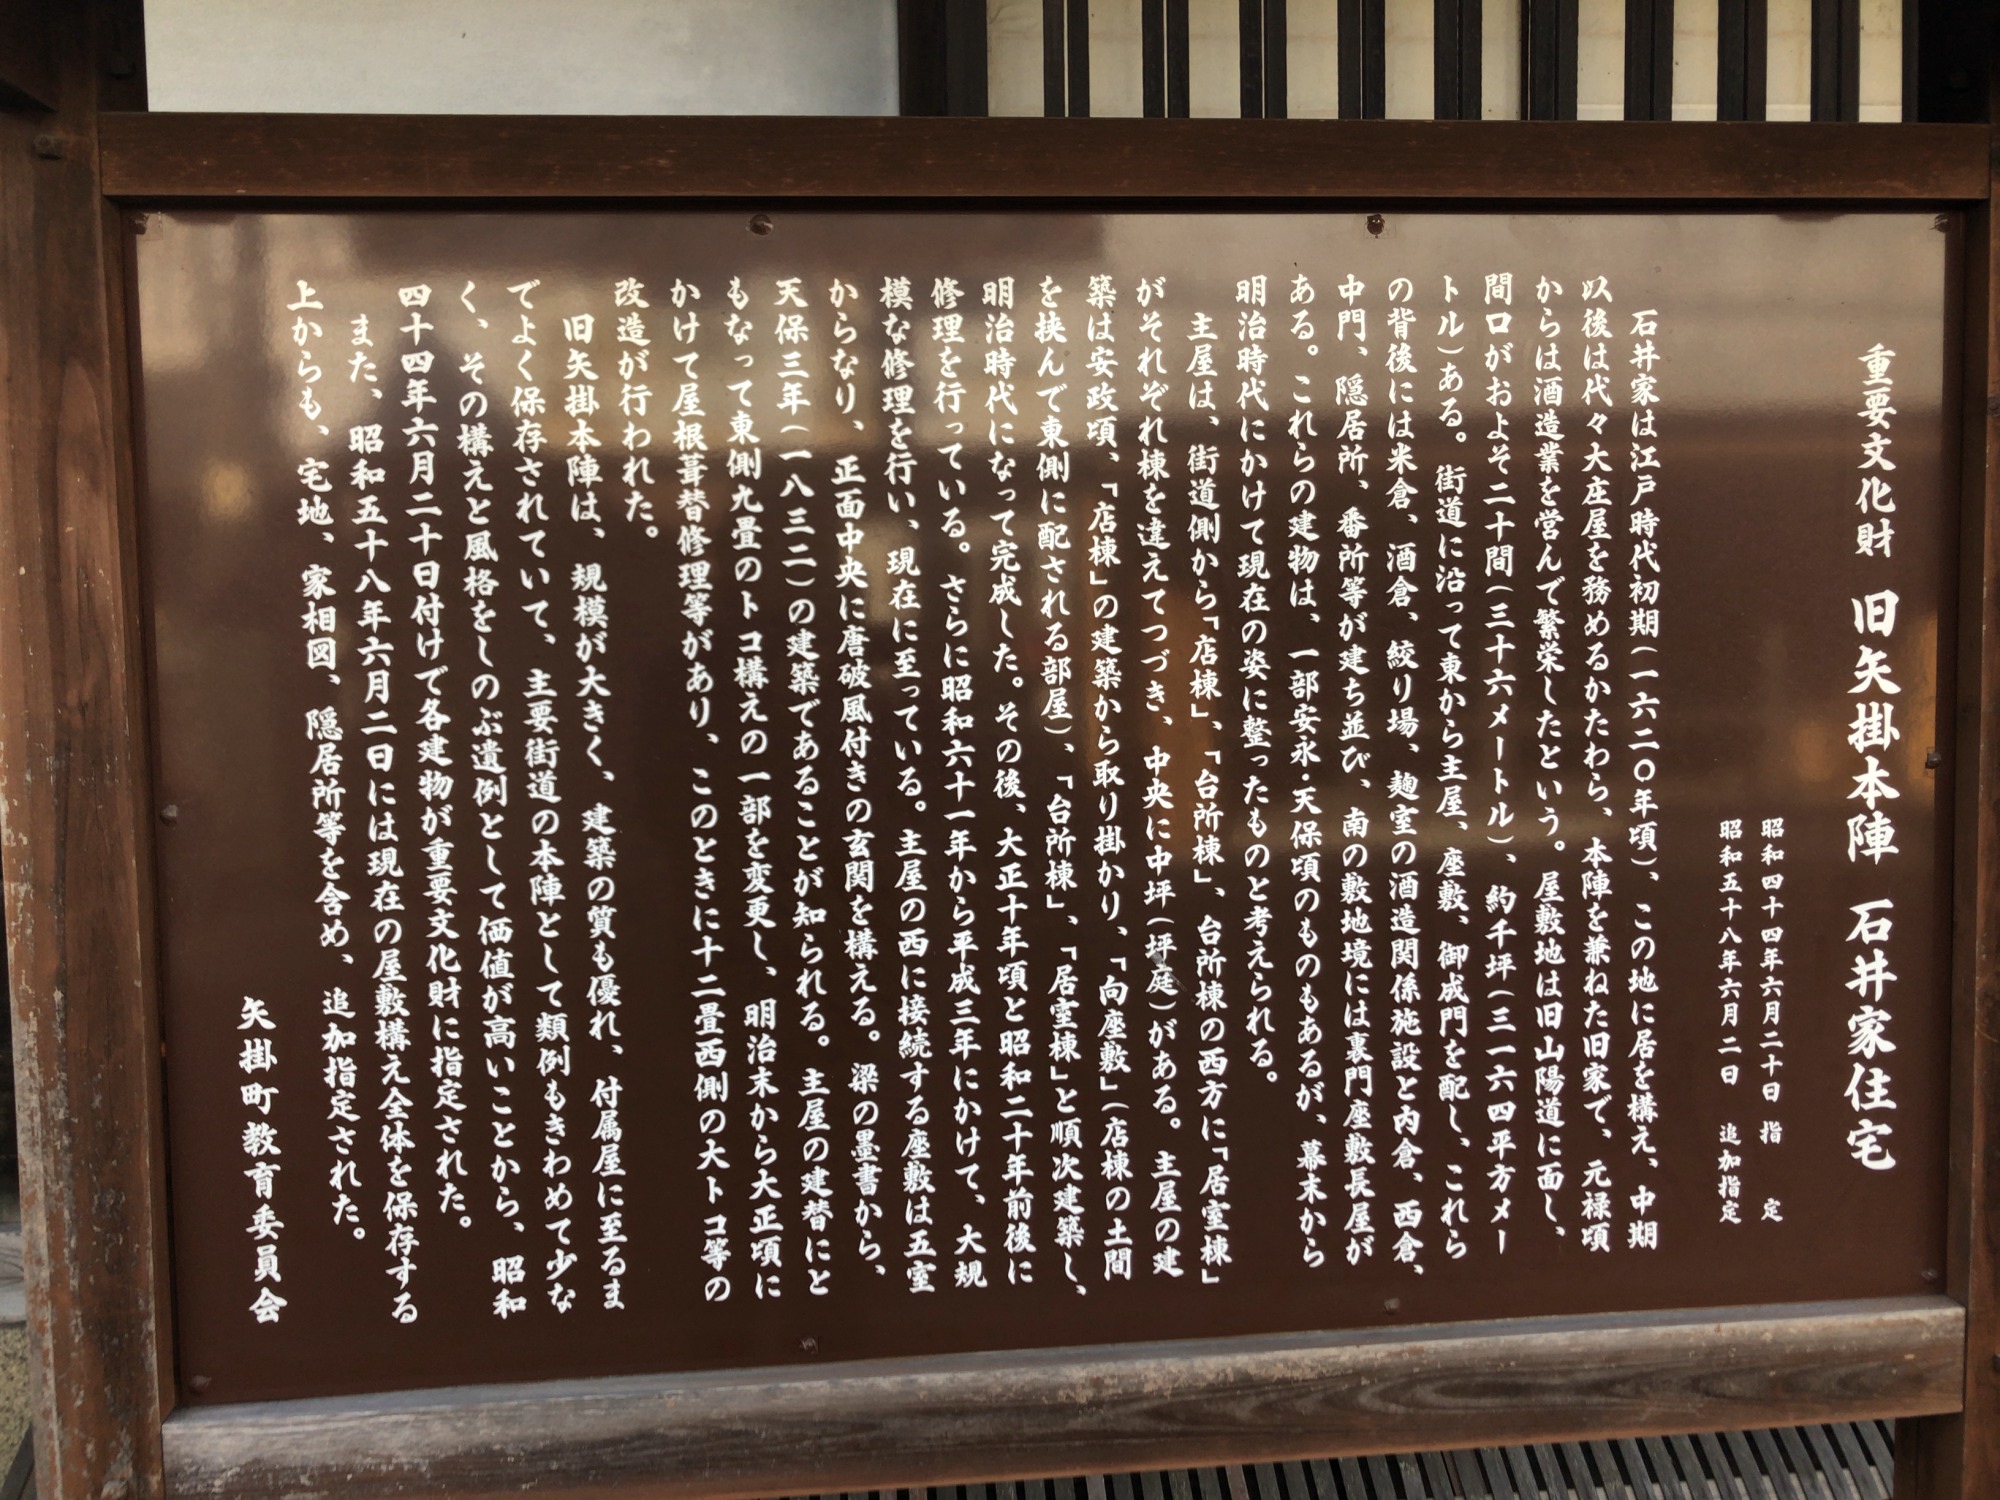 重要文化財　旧矢掛本陣　石井家住宅
昭和四十四年六月二十日　指　定
昭和五十八年六月二日　追加指定
石井家は江戸時代初期(一六二〇年頃)、この地に居を構え、中期
以後は代々大庄屋を務めるかたわら、本陣を兼ねた旧家で、元禄頃
からは酒造業を営んで繁栄したという。屋敷地は旧山陽道に面し、
間口がおよそ二十間(三十六メートル)、約千坪(三一六四平方メー
トル)ある。街道に沿って東から主屋、座敷、御成門を配し、これら
の背後には米倉、酒倉、絞り場、麹室の酒造関係施設と内倉、西倉、
中門、隠居所、番所等が建ち並び、南の敷地境には裏門座敷長屋が
ある。これらの建物は、一部安永・天保頃のものもあるが、幕末から
明治時代にかけて現在の姿に整ったものと考えられる。
主屋は、街道側から「店棟」、「台所棟」、台所棟の西方に「居室棟」
がそれぞれ棟を違えてつづき、中央に中坪(坪庭)がある。主屋の建
築は安政頃、「店棟」の建築から取り掛かり、「向座敷」(店棟の土間
を挟んで東側に配される部屋)、「台所棟」、「居室棟」と順次建築し、
明治時代になって完成した。その後、大正十年頃と昭和二十年前後に
修理を行っている。さらに昭和六十一年から平成三年にかけて、大規
模な修理を行い、現在に至っている。主屋の西に接続する座敷は五室
からなり、正面中央に唐破風付きの玄関を構える。梁の墨書から、
天保三年(一八三二)の建築であることが知られる。主屋の建替にと
もなって東側九畳のトコ構えの一部を変更し、明治末から大正頃に
かけて屋根葺替修理等があり、このときに十二畳西側の大トコ等の
改造が行われた。
旧矢掛本陣は、規模が大きく、建築の質も優れ、付属屋に至るま
でよく保存されていて、主要街道の本陣として類例もきわめて少な
く、その構えと風格をしのぶ遺例として価値が高いことから、昭和
四十四年六月二十日付けで各建物が重要文化財に指定された。
また、昭和五十八年六月二日には現在の屋敷構え全体を保存する
上からも、宅地、家相図、隠居所等を含め、追加指定された。
矢掛町教育委員会